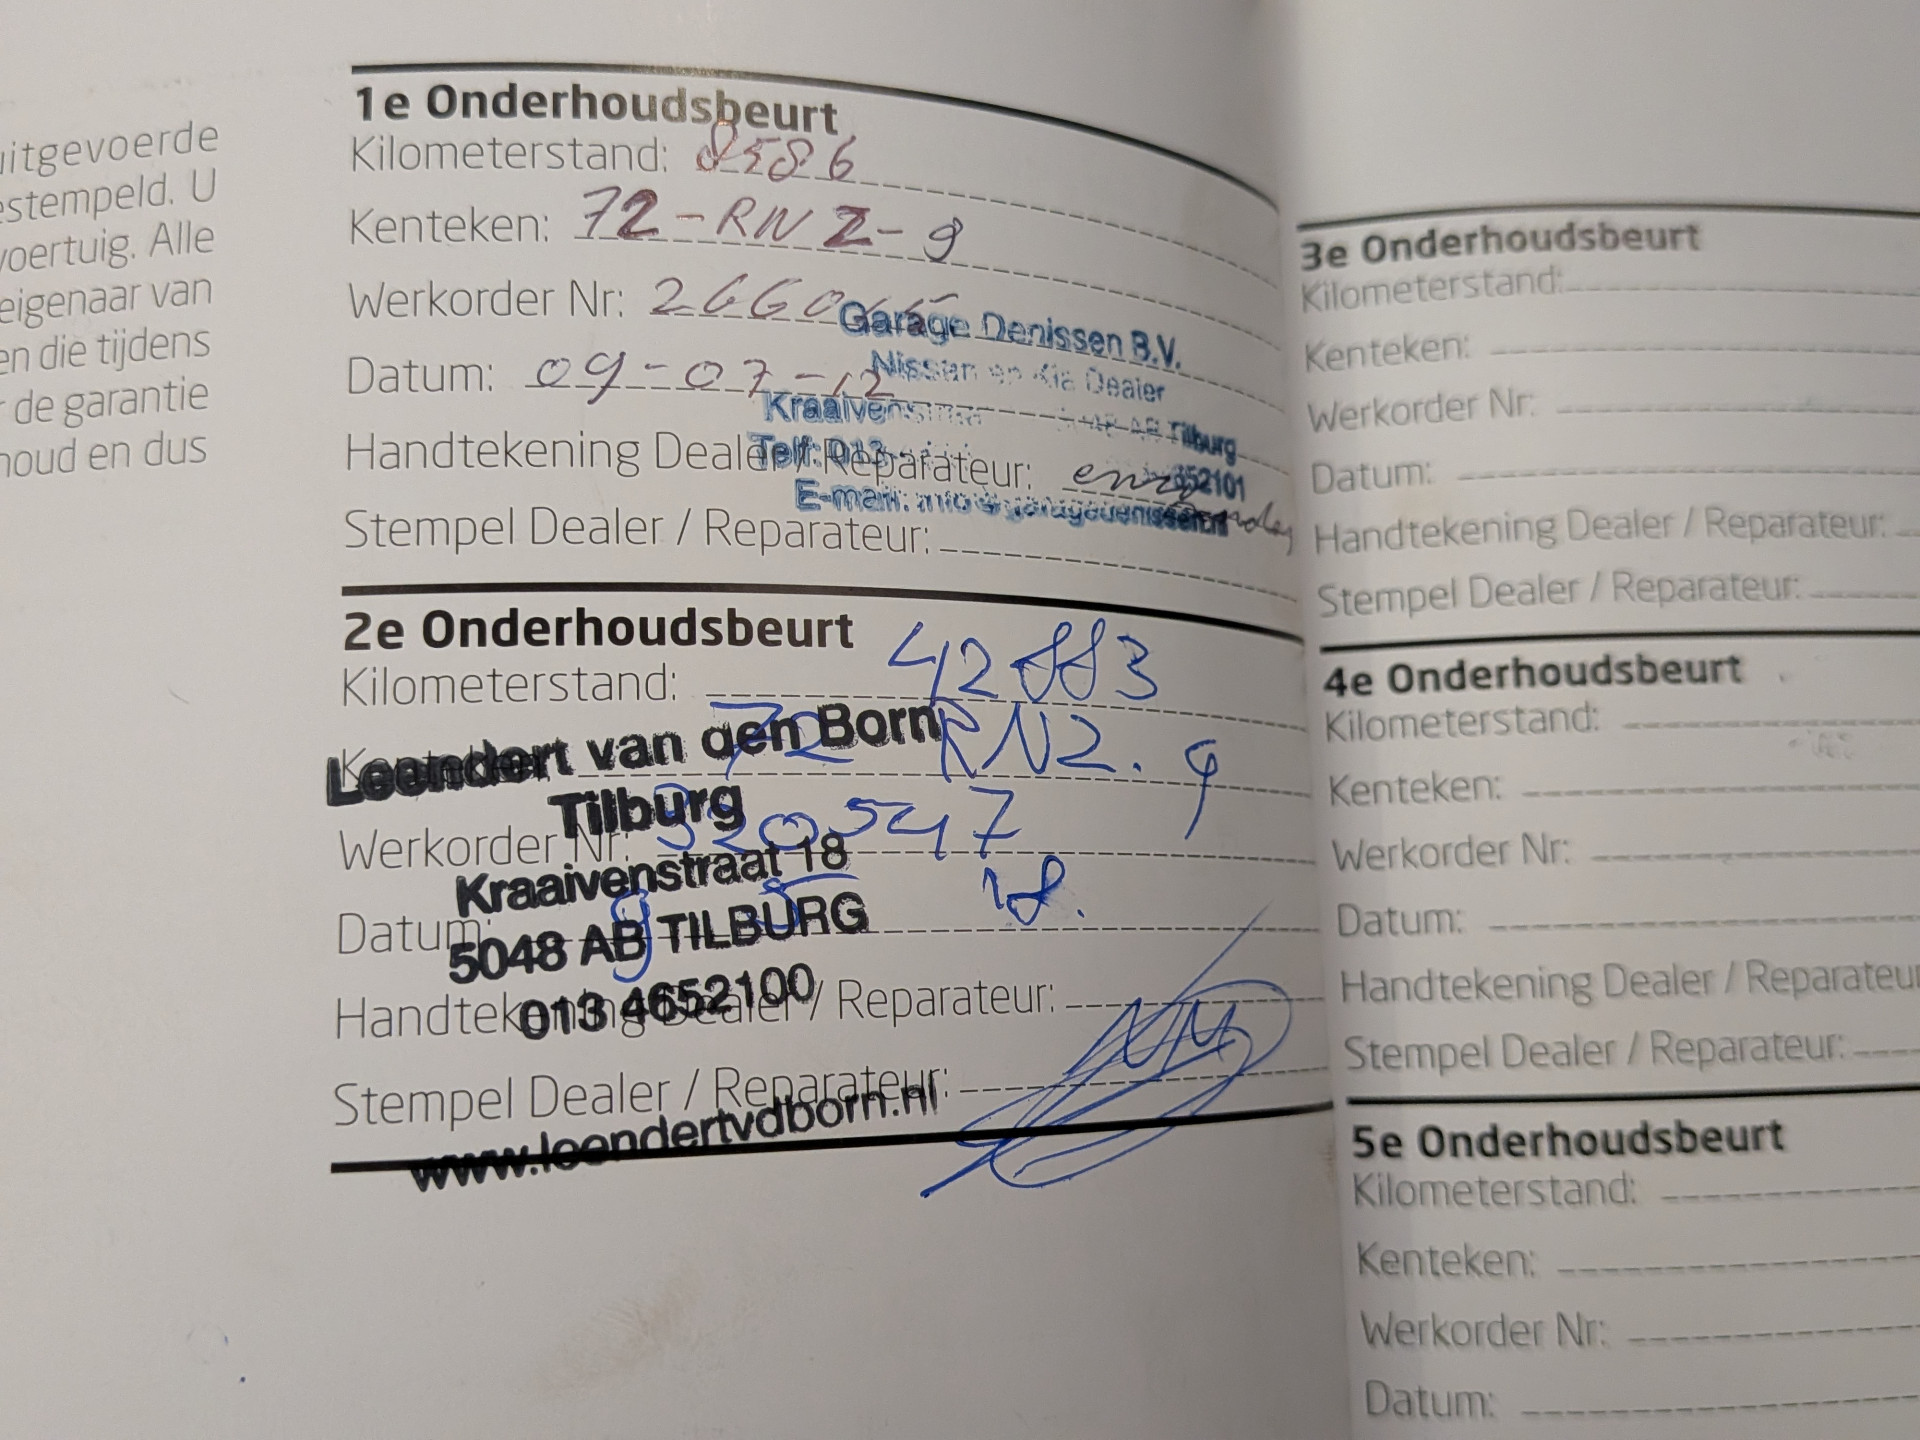 uitgevoerde
estempeld. U
voertuig. Alle
eigenaar van
en die tijdens
de garantie
houd en dus
1e Onderhoudsbeurt
Kilometerstand: 8586
Kenteken: 72-RNZ-9
Werkorder Nr: 2660
Datum: 09-07-12
Handtekening Dealer / Reparateur:
Stempel Dealer / Reparateur:
Garage Denissen B.V.
Nissan en Kia Dealer
AB Tilburg
Telf: 013
652101
E-mail:
2e Onderhoudsbeurt
Kilometerstand: 42883
Kenteken: 72 RNZ. 9
Werkorder Nr: 320547
Datum: 9 5 18.
Handtekening Dealer / Reparateur:
Stempel Dealer / Reparateur:
Leendert van den Born
Tilburg
Kraaivenstraat 18
5048 AB TILBURG
013 4652100
www.leendertvdborn.nl
3e Onderhoudsbeurt
Kilometerstand:
Kenteken:
Werkorder Nr:
Datum:
Handtekening Dealer / Reparateur:
Stempel Dealer / Reparateur:
4e Onderhoudsbeurt
Kilometerstand:
Kenteken:
Werkorder Nr:
Datum:
Handtekening Dealer / Reparateur
Stempel Dealer / Reparateur:
5e Onderhoudsbeurt
Kilometerstand:
Kenteken:
Werkorder Nr:
Datum: